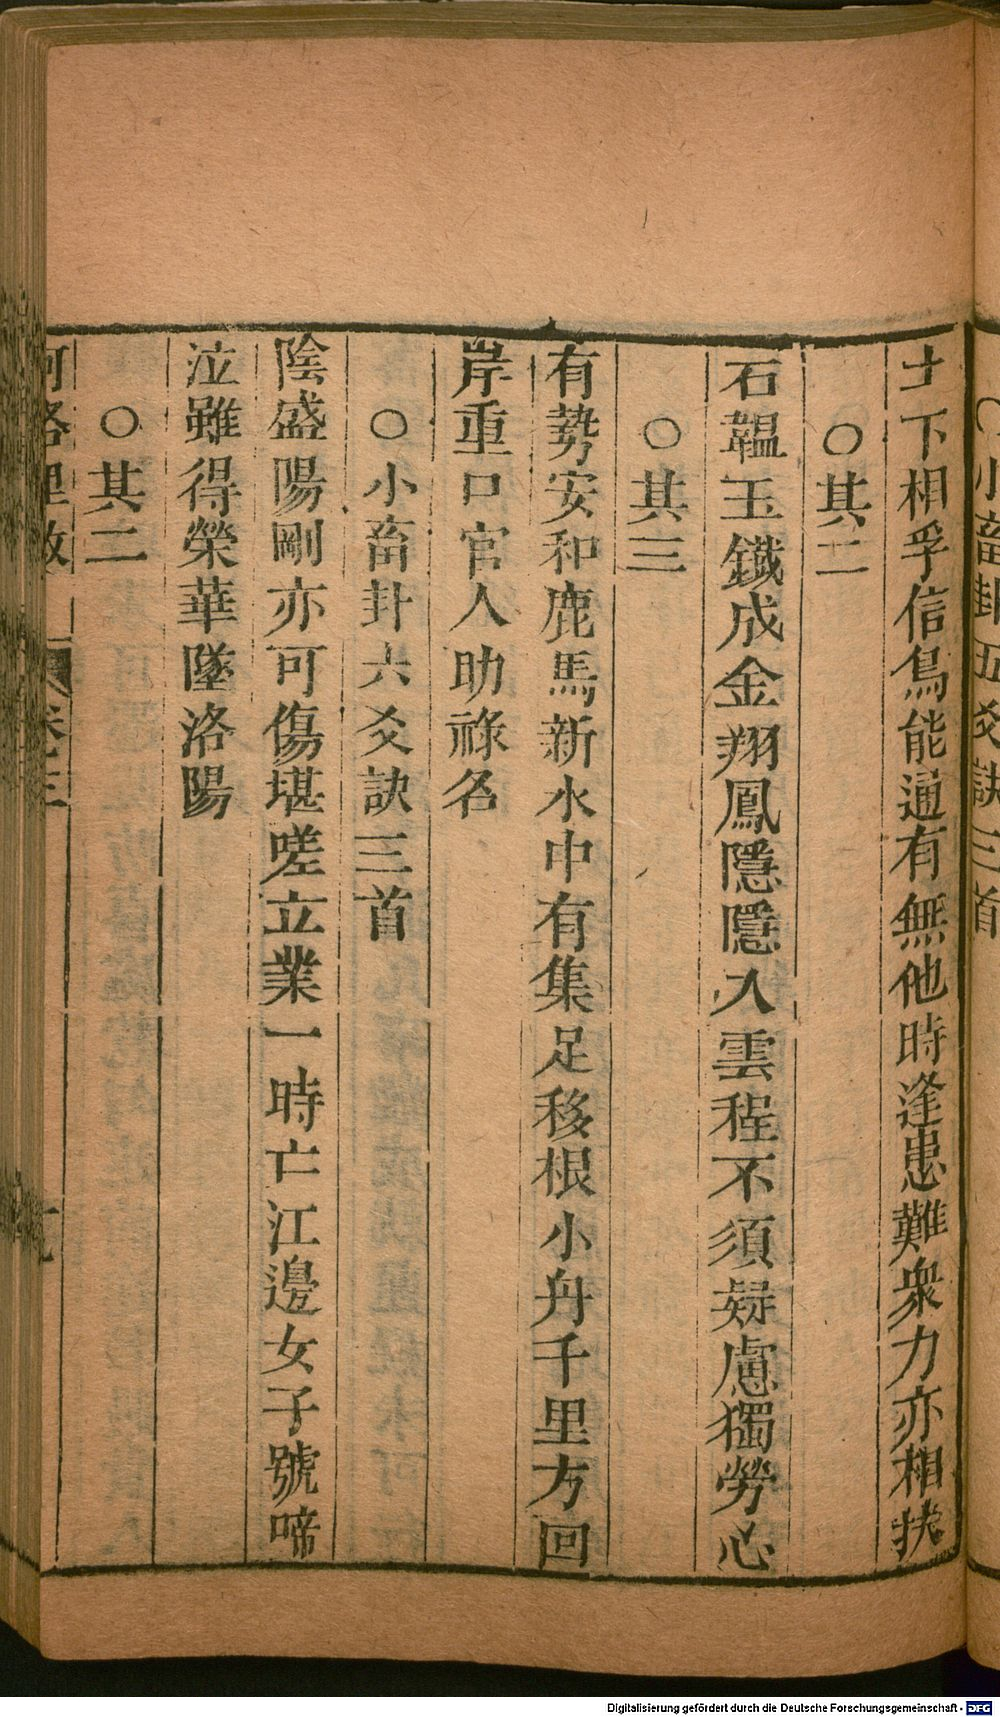 ○小畜卦五爻訣三首
土下相孚信鳥能通有無他時逢患難衆力亦相扶
○其二
石韞玉鐵成金翔鳳隱隱入雲程不須疑慮獨勞心
○其三
有勢安和鹿馬新水中有集足移根小舟千里方回
岸重口官人助祿名
○小畜卦六爻訣三首
陰盛陽剛亦可傷堪嗟立業一時亡江邊女子號啼
泣雖得榮華墜洛陽
○其二
河洛理數 卷之三
Digitalisierung gefördert durch die Deutsche Forschungsgemeinschaft - DFG